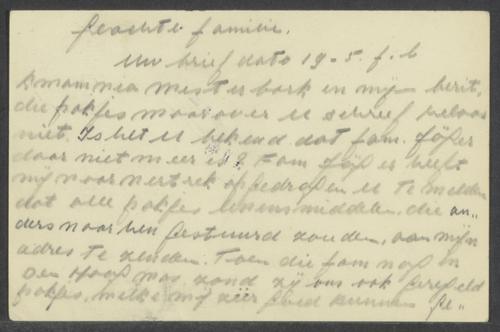 Geachte familie.
Uw brief dato 19-5. j.l.
kwam na Westerbork in mijn bezit,
die pakjes waarover U schreef helaas
niet. Is het U bekend dat fam.
daar niet meer is? Fam. heeft
mij voor vertrek opgedragen U te melden
dat alle pakjes levensmiddelen, die an-
ders naar hen gestuurd zouden, aan mijn
adres te zenden. Toen die fam nog in
Den Haag was zond zij ons ook geregeld
pakjes, welke wij zéér goed kunnen ge-